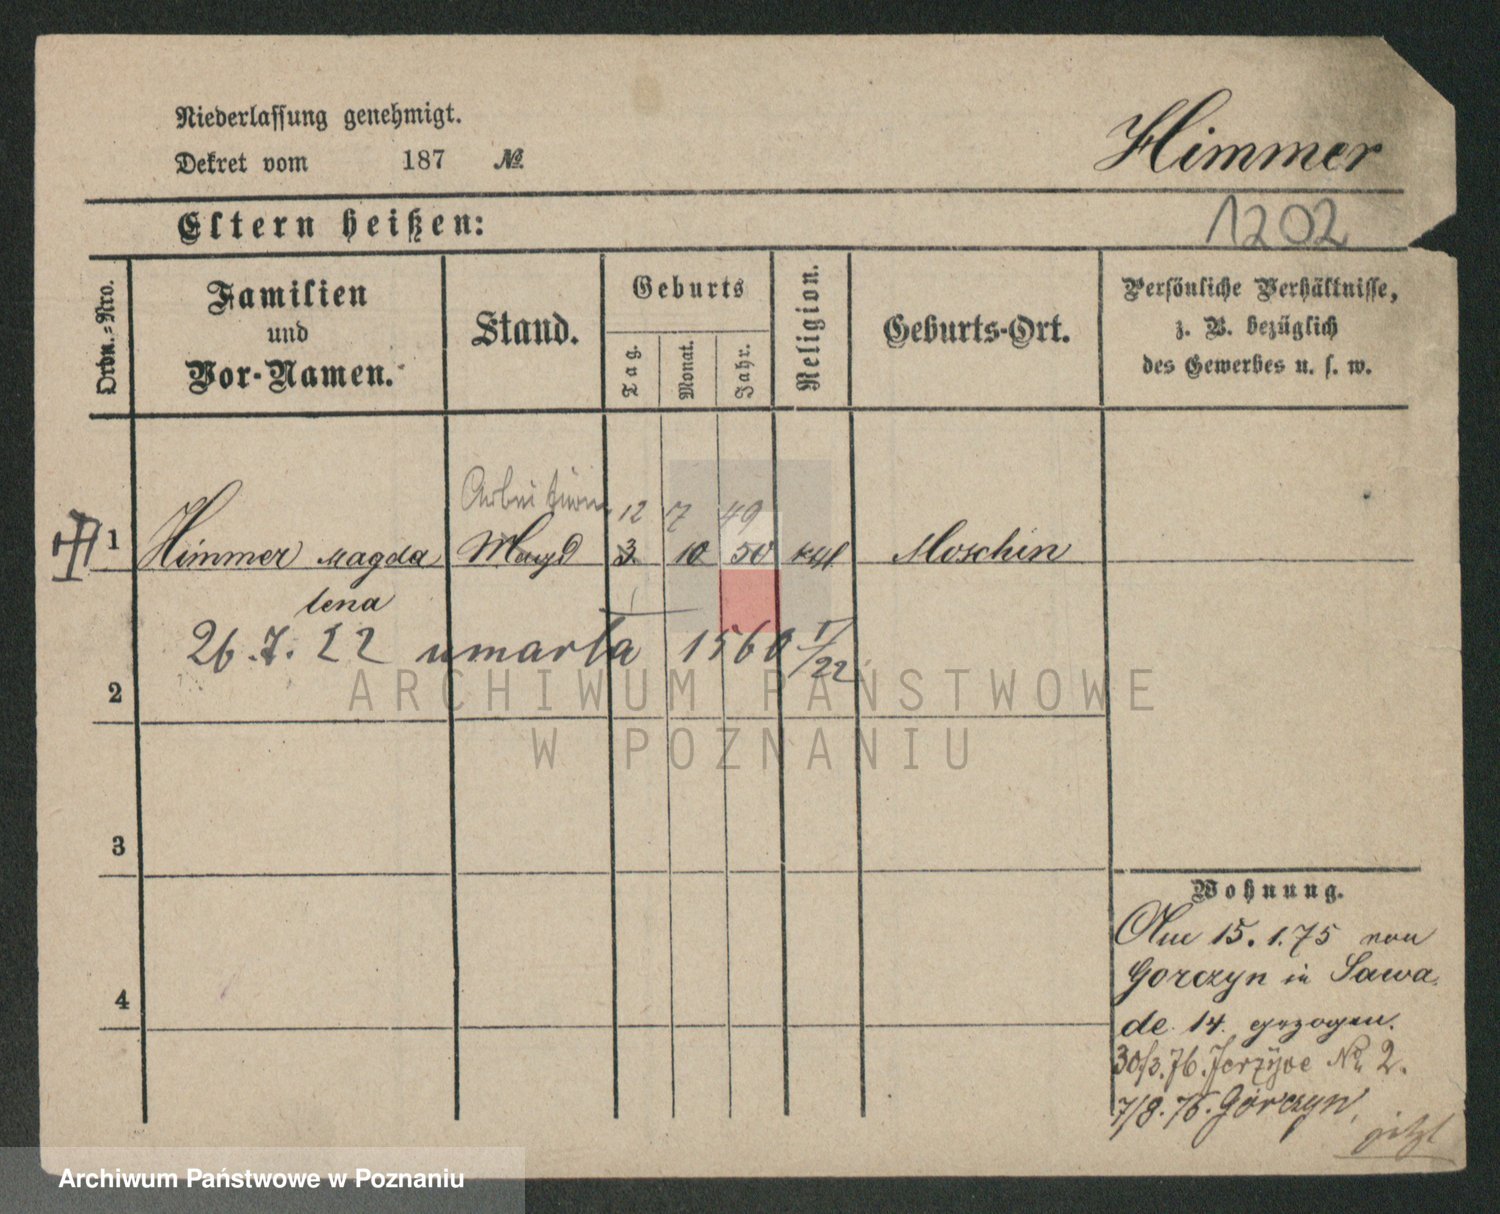 Niederlassung genehmigt.
Dekret vom 187 №
Himmer
Eltern heißen:
1202
Ordn.=Nro.
Familien
und
Vor-Namen.
Stand.
Geburts
Tag.
Monat.
Jahr.
Religion.
Geburts-Ort.
Persönliche Verhältnisse,
z. B. bezüglich
des Gewerbes u. s. w.
Arbeiterin 12 7 49
1 Himmer Magda Magd 3 10 50 kath Moschin
lena
26.7.22 umarła 1560 /22
2
ARCHIWUM PAŃSTWOWE
W POZNANIU
3
4
Wohnung.
Am 15.1.75 von
Gorczyn in Sawa
de 14 gezogen.
30/3.76. Jerzyce No 2.
7/8.76. Górczyn,
jetzt
Archiwum Państwowe w Poznaniu